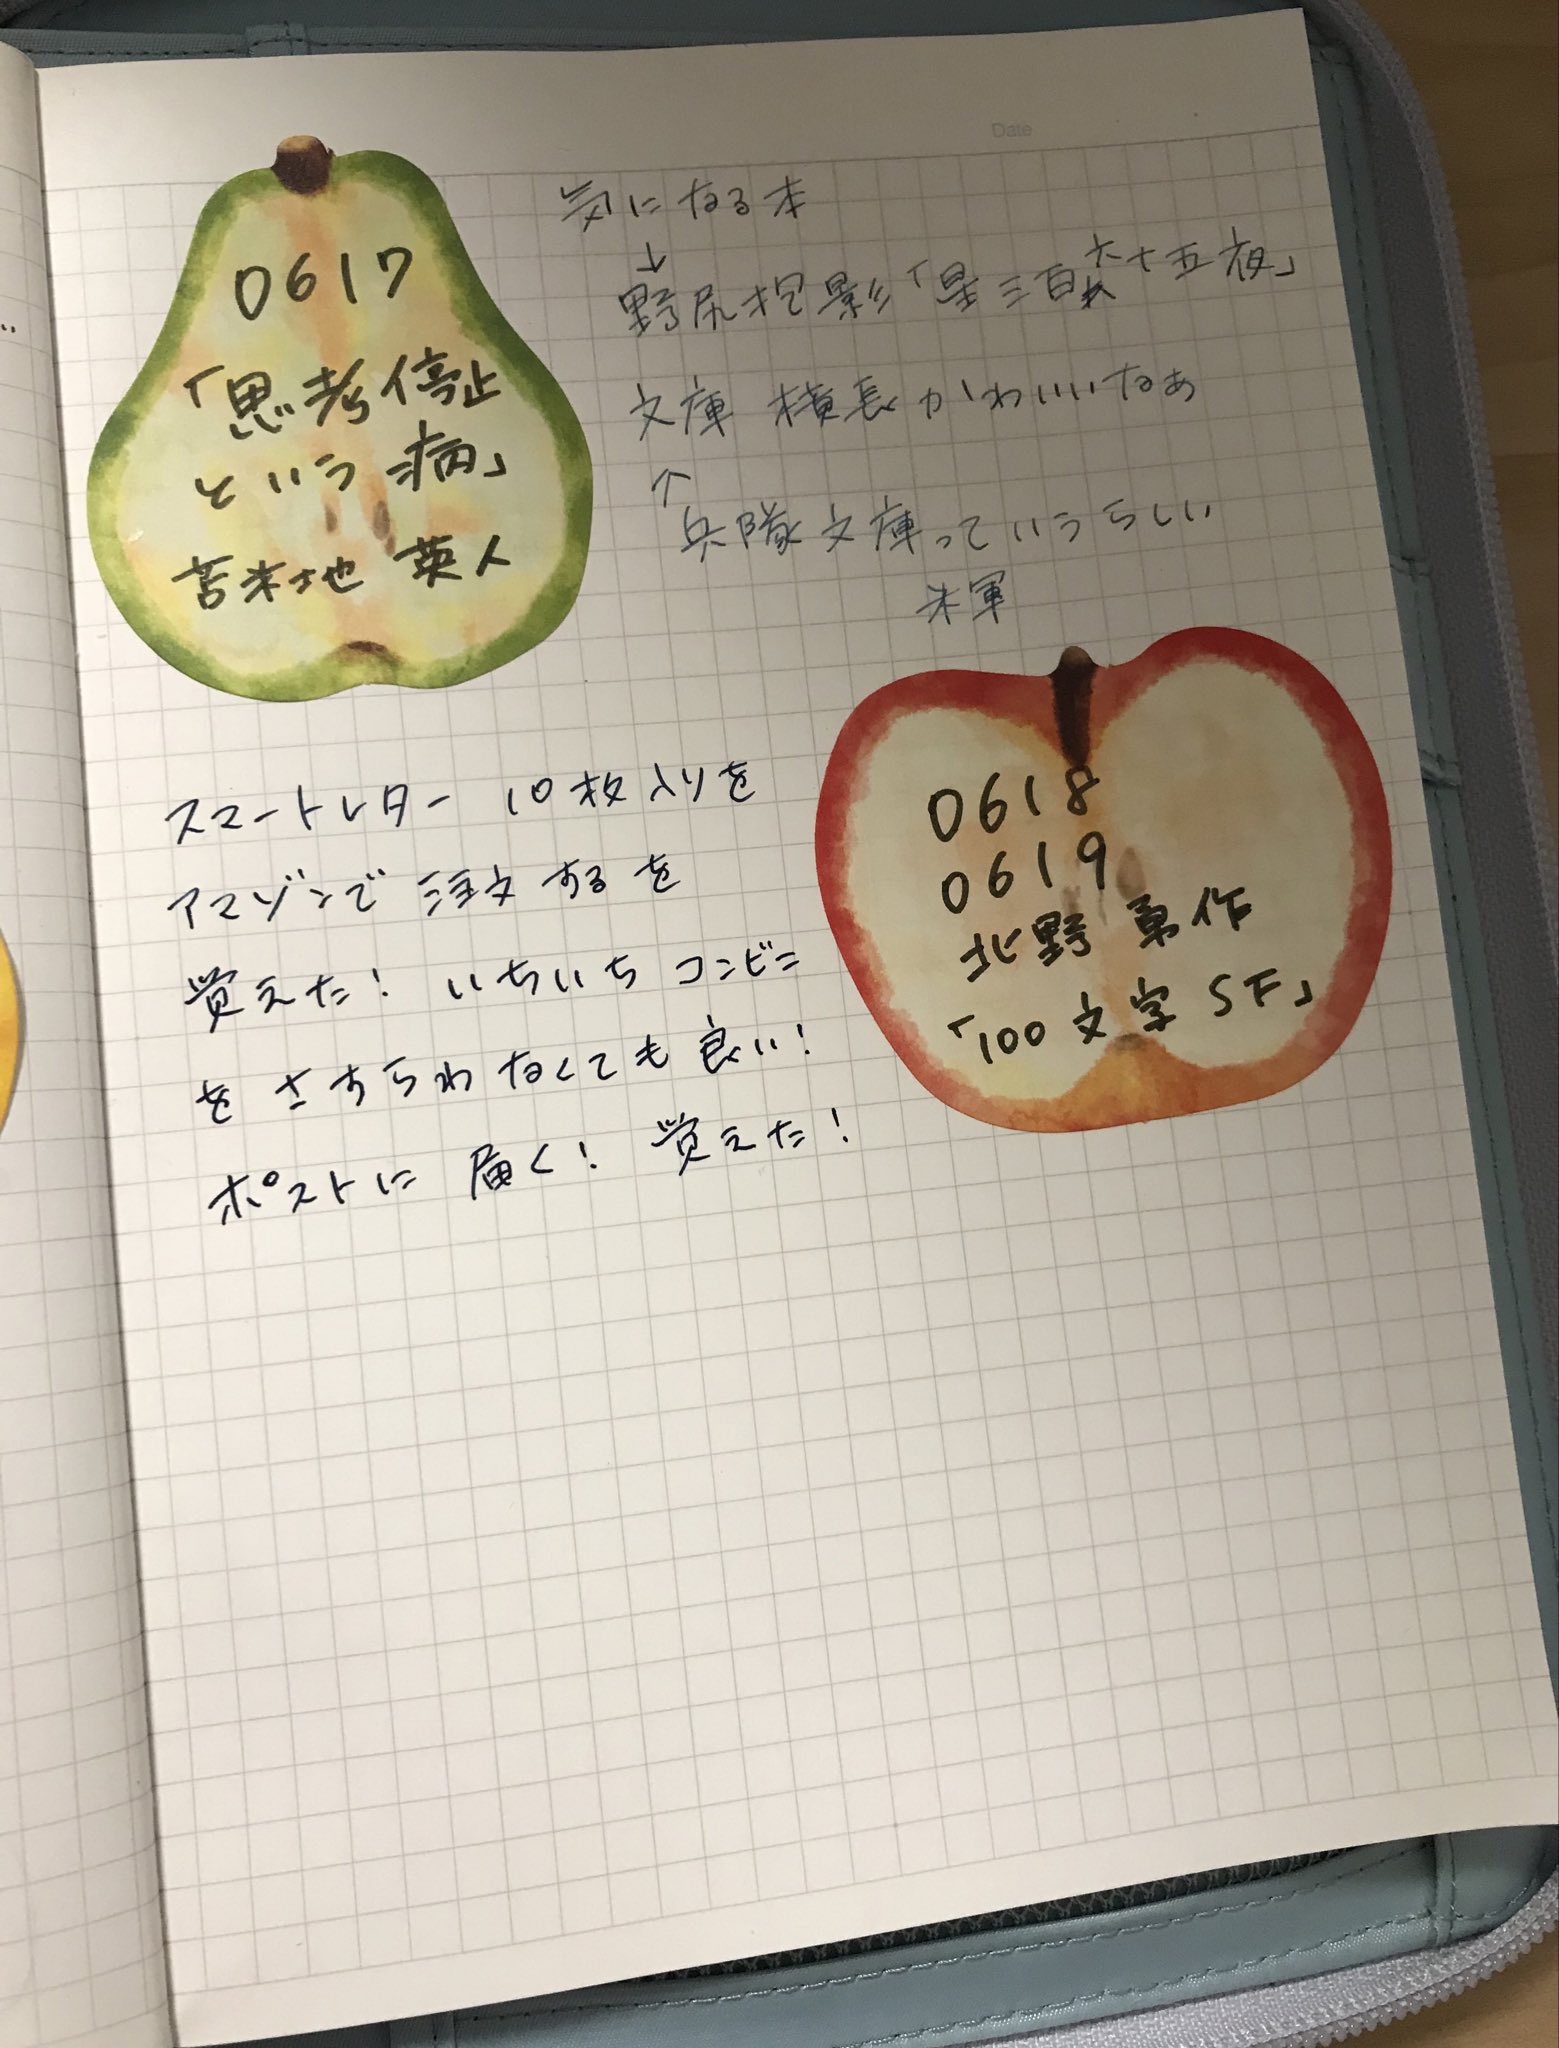 Date
0617
「思考停止
という病」
苫米地 英人
気になる本
↓
野尻抱影「星三百六十五夜」
文庫 横長かわいいなぁ
↑
兵隊文庫っていうらしい
米軍
0618
0619
北野 勇作
「100文字SF」
スマートレター 10枚入りを
アマゾンで注文するを
覚えた! いちいちコンビニ
をさすらわなくても良い!
ポストに届く! 覚えた!